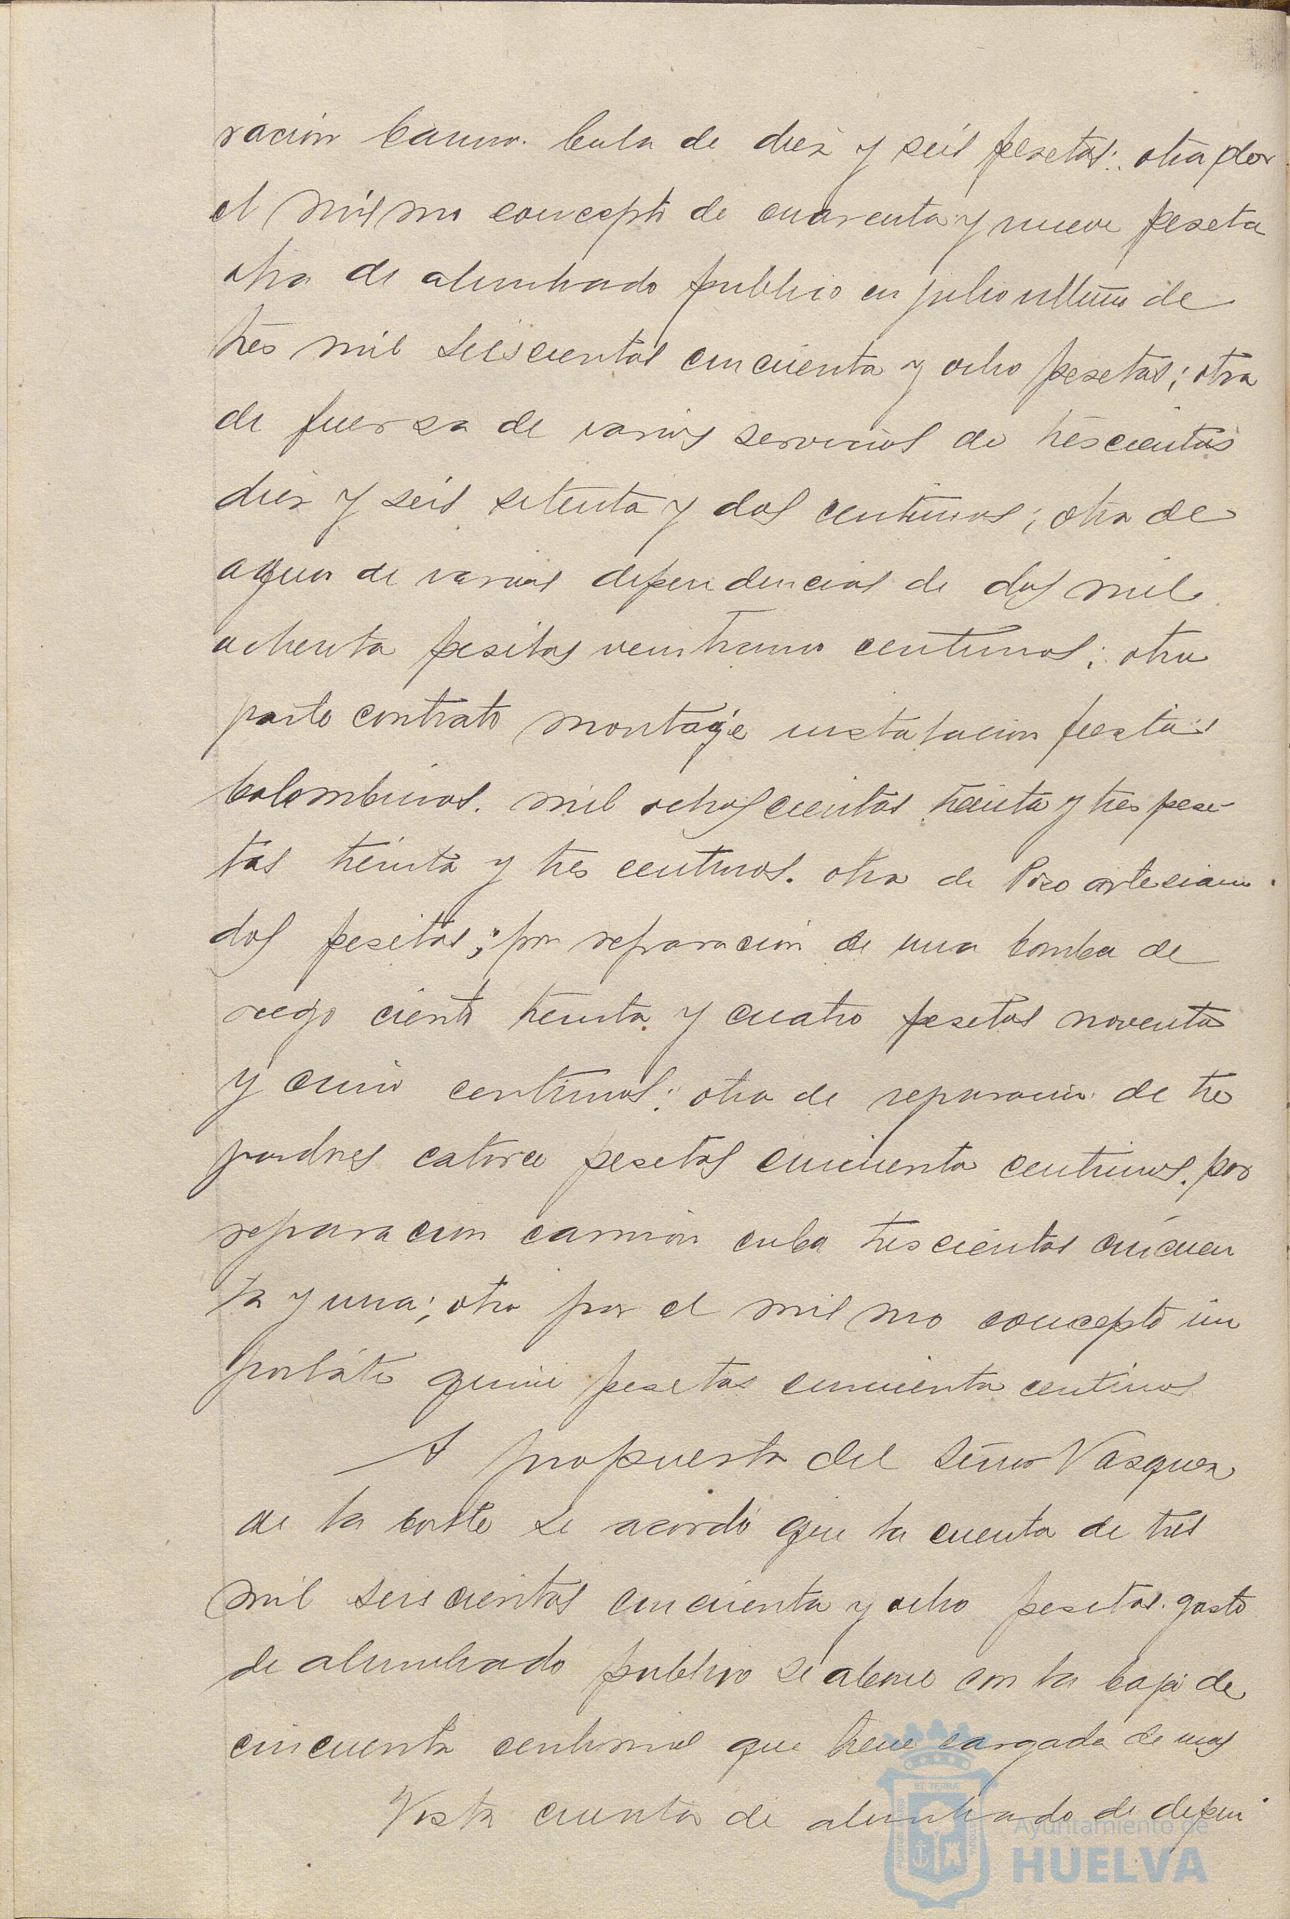 ración camión Cuba de diez y seis pesetas: otra por
el mismo concepto de cuarenta y nueve peseta
otra de alumbrado publico en julio ultimo de
tres mil seiscientas cincuenta y ocho pesetas; otra
de fuerza de varios servicios de trescientas
diez y seis setenta y dos centimos; otra de
agua de varias dependencias de dos mil
ochenta pesetas veintiuno centimos; otra
parte contrato montaje instalacion fiestas
Colombinas. mil ochoscientas treinta y tres pese-
tas treinta y tres centimos. otra de Pozo artesiano
dos pesetas; por reparacion de una bomba de
riego ciento treinta y cuatro pesetas noventa
y cinco centimos: otra de reparacion de tre
catorce pesetas cincuenta centimos. por
reparacion camión cuba trescientas cincuen
ta y una; otra por el mismo concepto im
portante quince pesetas cincuenta centimos
A propuesta del Señor Vasquez
de la Corte se acordó que la cuenta de tres
mil seiscientas cincuenta y ocho pesetas. gasto
de alumbrado publico se abone con la baja de
cincuenta centimos que tiene cargada de mas
Vista cuenta de alumbrado de depen
ET TERRAE
Ayuntamiento de
HUELVA